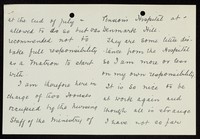 at the end of July –
allowed to do so but was
recommended not to
take full responsibility
as a Matron to start
with.
I am therefore here in
charge of two Houses
occupied by the nursing
Staff of the Ministry of
Pensions Hospital at
Denmark Hill
They are some little dis-
tance from the Hospital
so I am more or less
on my own responsibility
It is so nice to be
at work again and
though all is strange
I have not so far